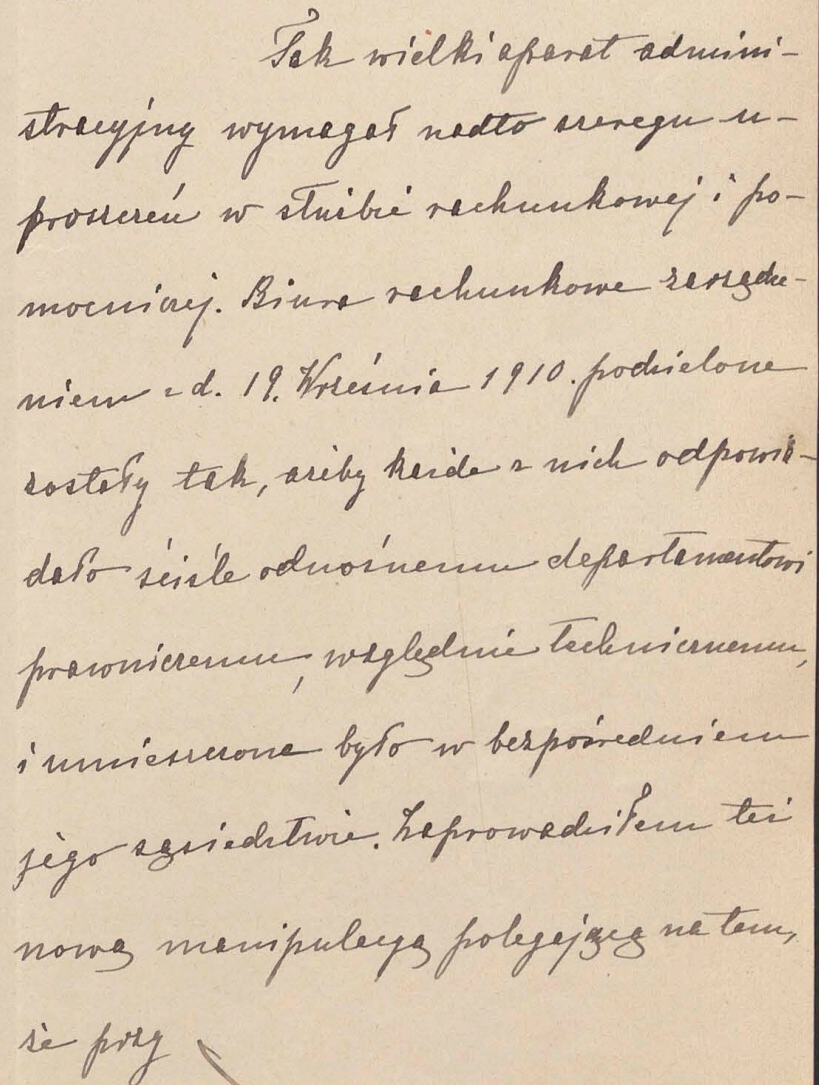 Tak wielki aparat admini-
stracyjny wymagał nadto szeregu u-
proszczeń w służbie rachunkowej i po-
mocniczej. Biura rachunkowe zarządze-
niem z d. 19. Września 1910. podzielone
zostały tak, ażeby każde z nich odpowia-
dało ściśle odnośnemu departamentowi
prawniczemu, względnie technicznemu,
i umieszczone było w bezpośredniem
jego sąsiedztwie. Zaprowadziłem też
nową manipulacyą polegającą na tem,
że przy